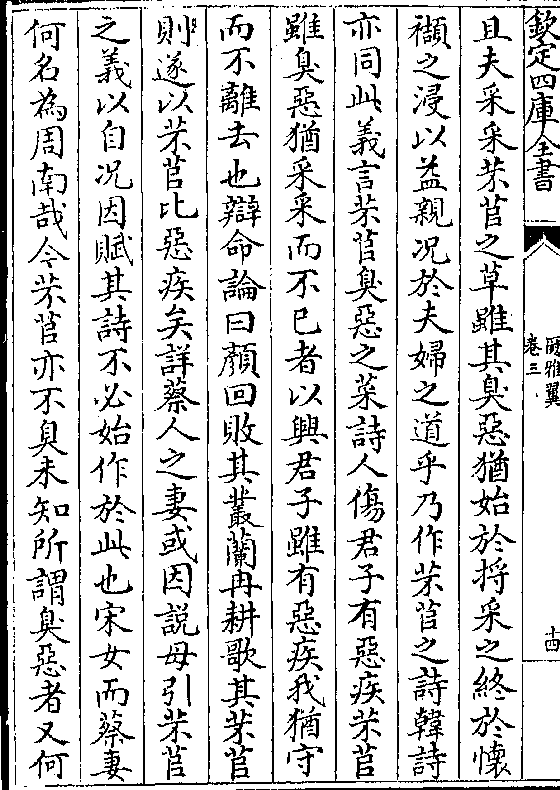 欽定四庫全書
爾雅翼
卷三
十四
且夫采采芣苢之草雖其臭惡猶始於捋采之終於懷
襭之浸以益親況於夫婦之道乎乃作芣苢之詩韓詩
亦同此義言芣苢臭惡之菜詩人傷君子有惡疾芣苢
雖臭惡猶采采而不已者以興君子雖有惡疾我猶守
而不離去也辯命論曰顏回敗其叢蘭冉耕歌其芣苢
則遂以芣苢比惡疾矣詳蔡人之妻或因説母引芣苢
之義以自况因賦其詩不必始作於此也宋女而蔡妻
何名為周南哉今芣苢亦不臭未知所謂臭惡者又何